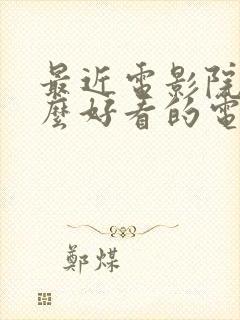 最近電影院
麼好看的電
鄭煤